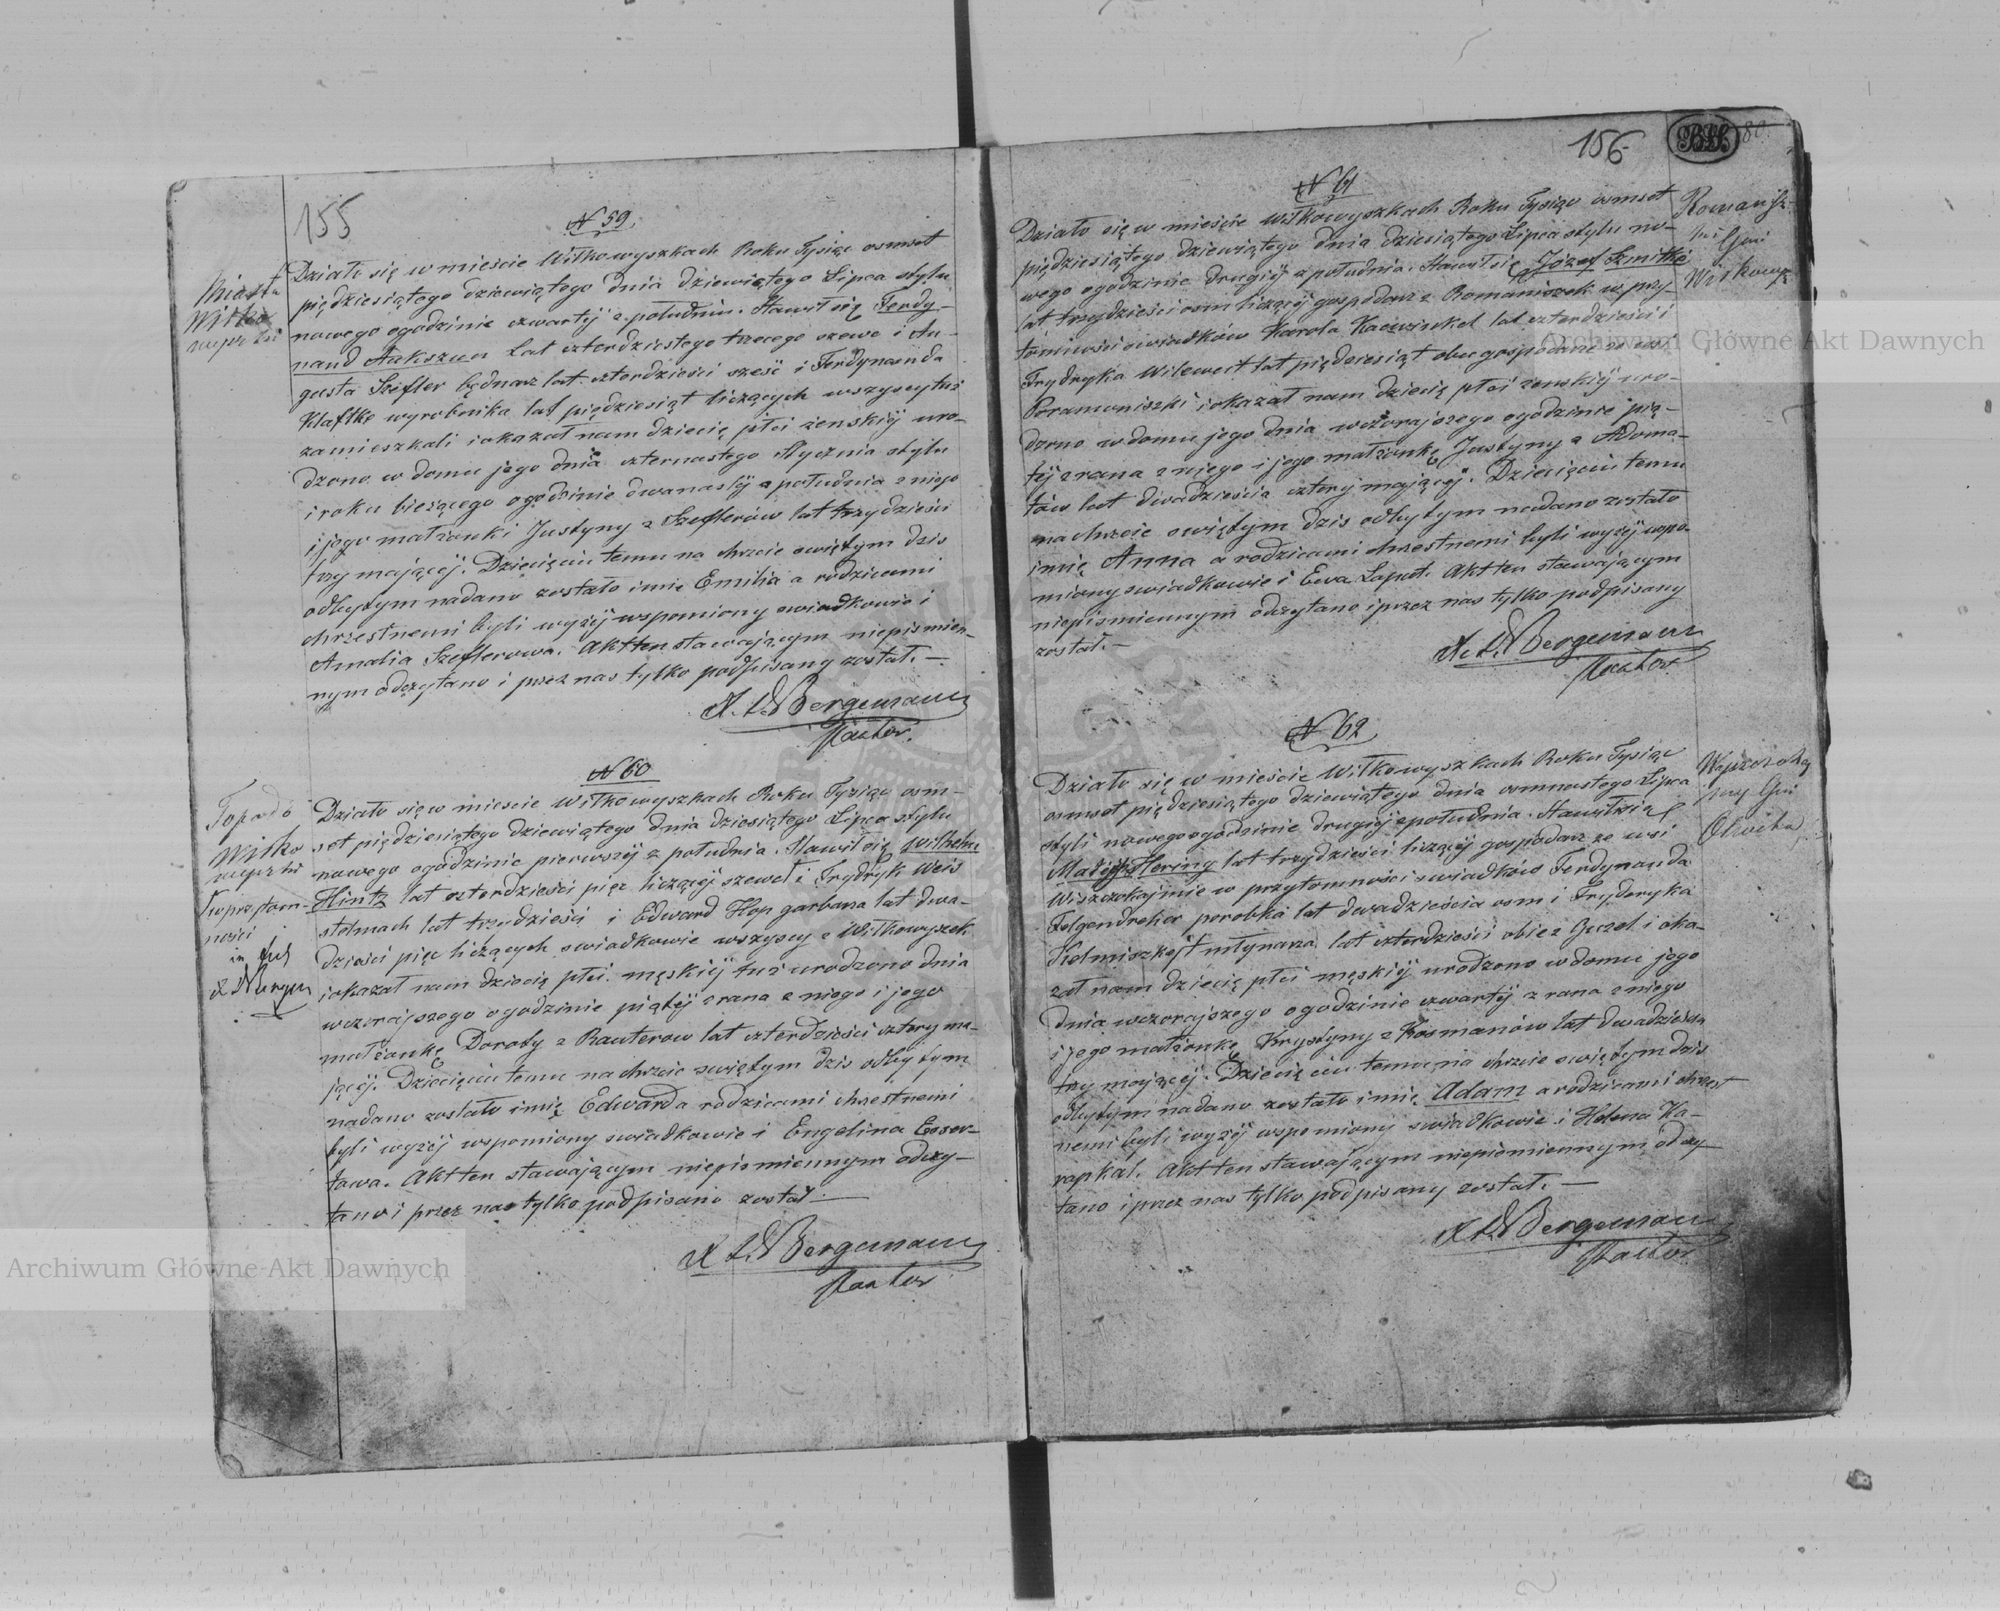 155
N 59.
Miasta
Wiłko
wyszki
Działo się w mieście Wiłkowyszkach Roku Tysiąc osmset
piędziesiątego dziewiątego dnia dziewiątego Lipca stylu
nowego ogodzinie czwartéj z południu. Stawił się Ferdy-
nand lat czterdziestego trzecego szewc i Au-
gusta Szefler będnarz lat czterdzieści sześć i Ferdynanda
Klaftke wyrobnika lat pięдziesiąt liczących wszyscy tuż
zamieszkali i okazał nam dziecię płci żenskiéj uro-
dzone w domu jego dnia czternastego Stycznia stylu
i roku bieżącego ogodzinie dwanastéj z południa z niego
i jego małżonki Justyny z Szeflerów lat trzydzieści
trzy mającéj. Dziecięciu temu na chrzcie świętym dzis
odbytym nadano zostało imie Emilia a rodzicami
chrzestnemi byli wyżéj wspomiony swiadkowie i
Amalia Szeflerowa. Akt ten stawającym niepismien-
nym odczytano i przez nas tylko podpisany został. —
X. L. Bergemann
Pastor.
N 60
Wiłko
wyszki
Działo się w mieście Wiłkowyszkach Roku Tysiąc osm-
set pięдziesiątego dziewiątego dnia dziesiątego Lipca stylu
nowego ogodzinie pierwszéj z południa. Stawił się Wilhelm
Hintz lat czterdzieści pięc liczącéj szewc i Frydryk Weis
stelmach lat trzydzieści i Edward Hop garbarza lat dwa-
dzieści pięc liczących swiadkowie wszyscy z Wiłkowyszek
i okazał nam dziecię płci męskiéj tuż urodzono dnia
wczorajszego ogodzinie piątéj z rana z niego i jego
małżonkę Doroty z Rauterow lat czterdzieści cztery ma-
jącéj. Dziecięciu temu na chrzcie swiętym dzis odbytym
nadano zostało imię Edward a rodzicami chrestnemi
byli wyżéj wspomiony swiadkowie i Engelina Esser-
towa. Akt ten stawającym niepismiennym odczy-
tano i przez nas tylko podpisano został. —
X L. Bergemann
Pastor
156
80.
N 61
Działo się w mieście Wiłkowyszkach Roku Tysiąc osmset
pięдziesiątego dziewiątego dnia dziesiątego Lipca stylu no-
wego ogodzinie drugiéj z południa. Stawił się Józef Szmitke
lat trzydzieści osm liczącéj gospodarz z Romaniszek w przy-
tomności swiadków Karola lat czterdzieści i
Frydryka Wilewert lat pięдziesiąt obu gospodarze ze wsi
Poramoniszki i okazał nam dziecię płci żenskiéj uro-
dzono w domu jego dnia wczorajszego ogodzinie pią-
téj z rana z niego i jego małżonkę Justyny z Adoma-
tów lat dwadzieścia cztery mającéj. Dziecięciu temu
na chrzcie swiętym dzis odbytym nadano zostało
imię Anna a rodzicami chrzestnemi byli wyżéj wspo-
miony swiadkowie i Ewa Laput. Akt ten stawającym
niepismiennym odczytano i przez nas tylko podpisany
został. —
X. L. Bergemann
Pastor.
N 62
Działo się w mieście Wiłkowyszkach Roku Tysiąc
osmset pięдziesiątego dziewiątego dnia osmnastego Lipca
styli nowego ogodzinie drugiéj z południa. Stawił się
Matÿs Hering lat trzydzieści liczącéj gospodarz ze wsi
Wiszczokajmie w przytomności swiadków Ferdynanda
Felgendreher porobka lat dwadzieścia osm i Fryderyka
młynarza lat czterdzieści obie z i oka-
zał nam dziecię płci męskiéj urodzono w domu jego
dnia wczorajszego ogodzinie czwartéj z rana z niego
i jego małżonkę Krystyny z Kosmanów lat dwadzieścia
trzy mającéj. Dziecięciu temu na chrzcie swiętym dzis
odbytym nadano zostało imię Adam a rodzicami chrzest
nemi byli wyżéj wspomiony swiadkowie i Helena Ka-
rapkal. Akt ten stawającym niepismiennym odczy
tano i przez nas tylko podpisany został. —
X L. Bergemann
Pastor
Archiwum Główne Akt Dawnych
Archiwum Główne Akt Dawnych